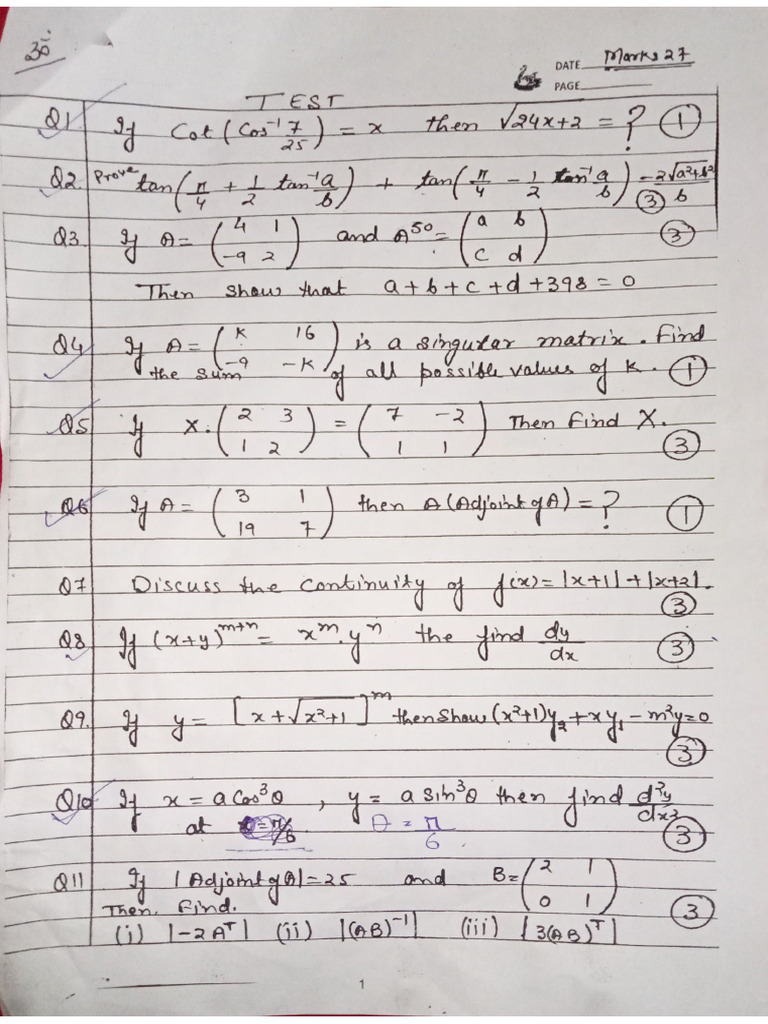 30
DATE Marks 27
PAGE
TEST
Q1 If Cot(Cos⁻¹ 7/25) = x then √24x+2 = ? (1)
Q2. Prove tan(π/4 + 1/2 tan⁻¹ a/b) + tan(π/4 - 1/2 tan⁻¹ a/b) = 2√a²+b²/b (3)
Q3. If A = (4 1 / -9 2) and A⁵⁰ = (a b / c d) (3)
Then show that a+b+c+d+398 = 0
Q4 If A = (K 16 / -9 -K) is a singular matrix. Find
the sum of all possible values of K. (1)
Q5 If X.(2 3 / 1 2) = (7 -2 / 1 1) Then Find X. (3)
Q6 If A = (3 1 / 19 7) then A(Adjoint of A) = ? (1)
Q7 Discuss the continuity of f(x) = |x+1| + |x+2|. (3)
Q8 If (x+y)ᵐ⁺ⁿ = xᵐ.yⁿ the find dy/dx (3)
Q9. If y = [x+√x²+1]ᵐ then show (x²+1)y₂+xy₁-m²y=0 (3)
Q10 If x = a Cos³θ, y = a Sin³θ then find d²y/dx²
at θ = π/6 (3)
Q11 If |Adjoint of A| = 25 and B = (2 1 / 0 1)
Then. Find. (3)
(i) |-2Aᵀ| (ii) |(AB)⁻¹| (iii) |3(AB)ᵀ|
1